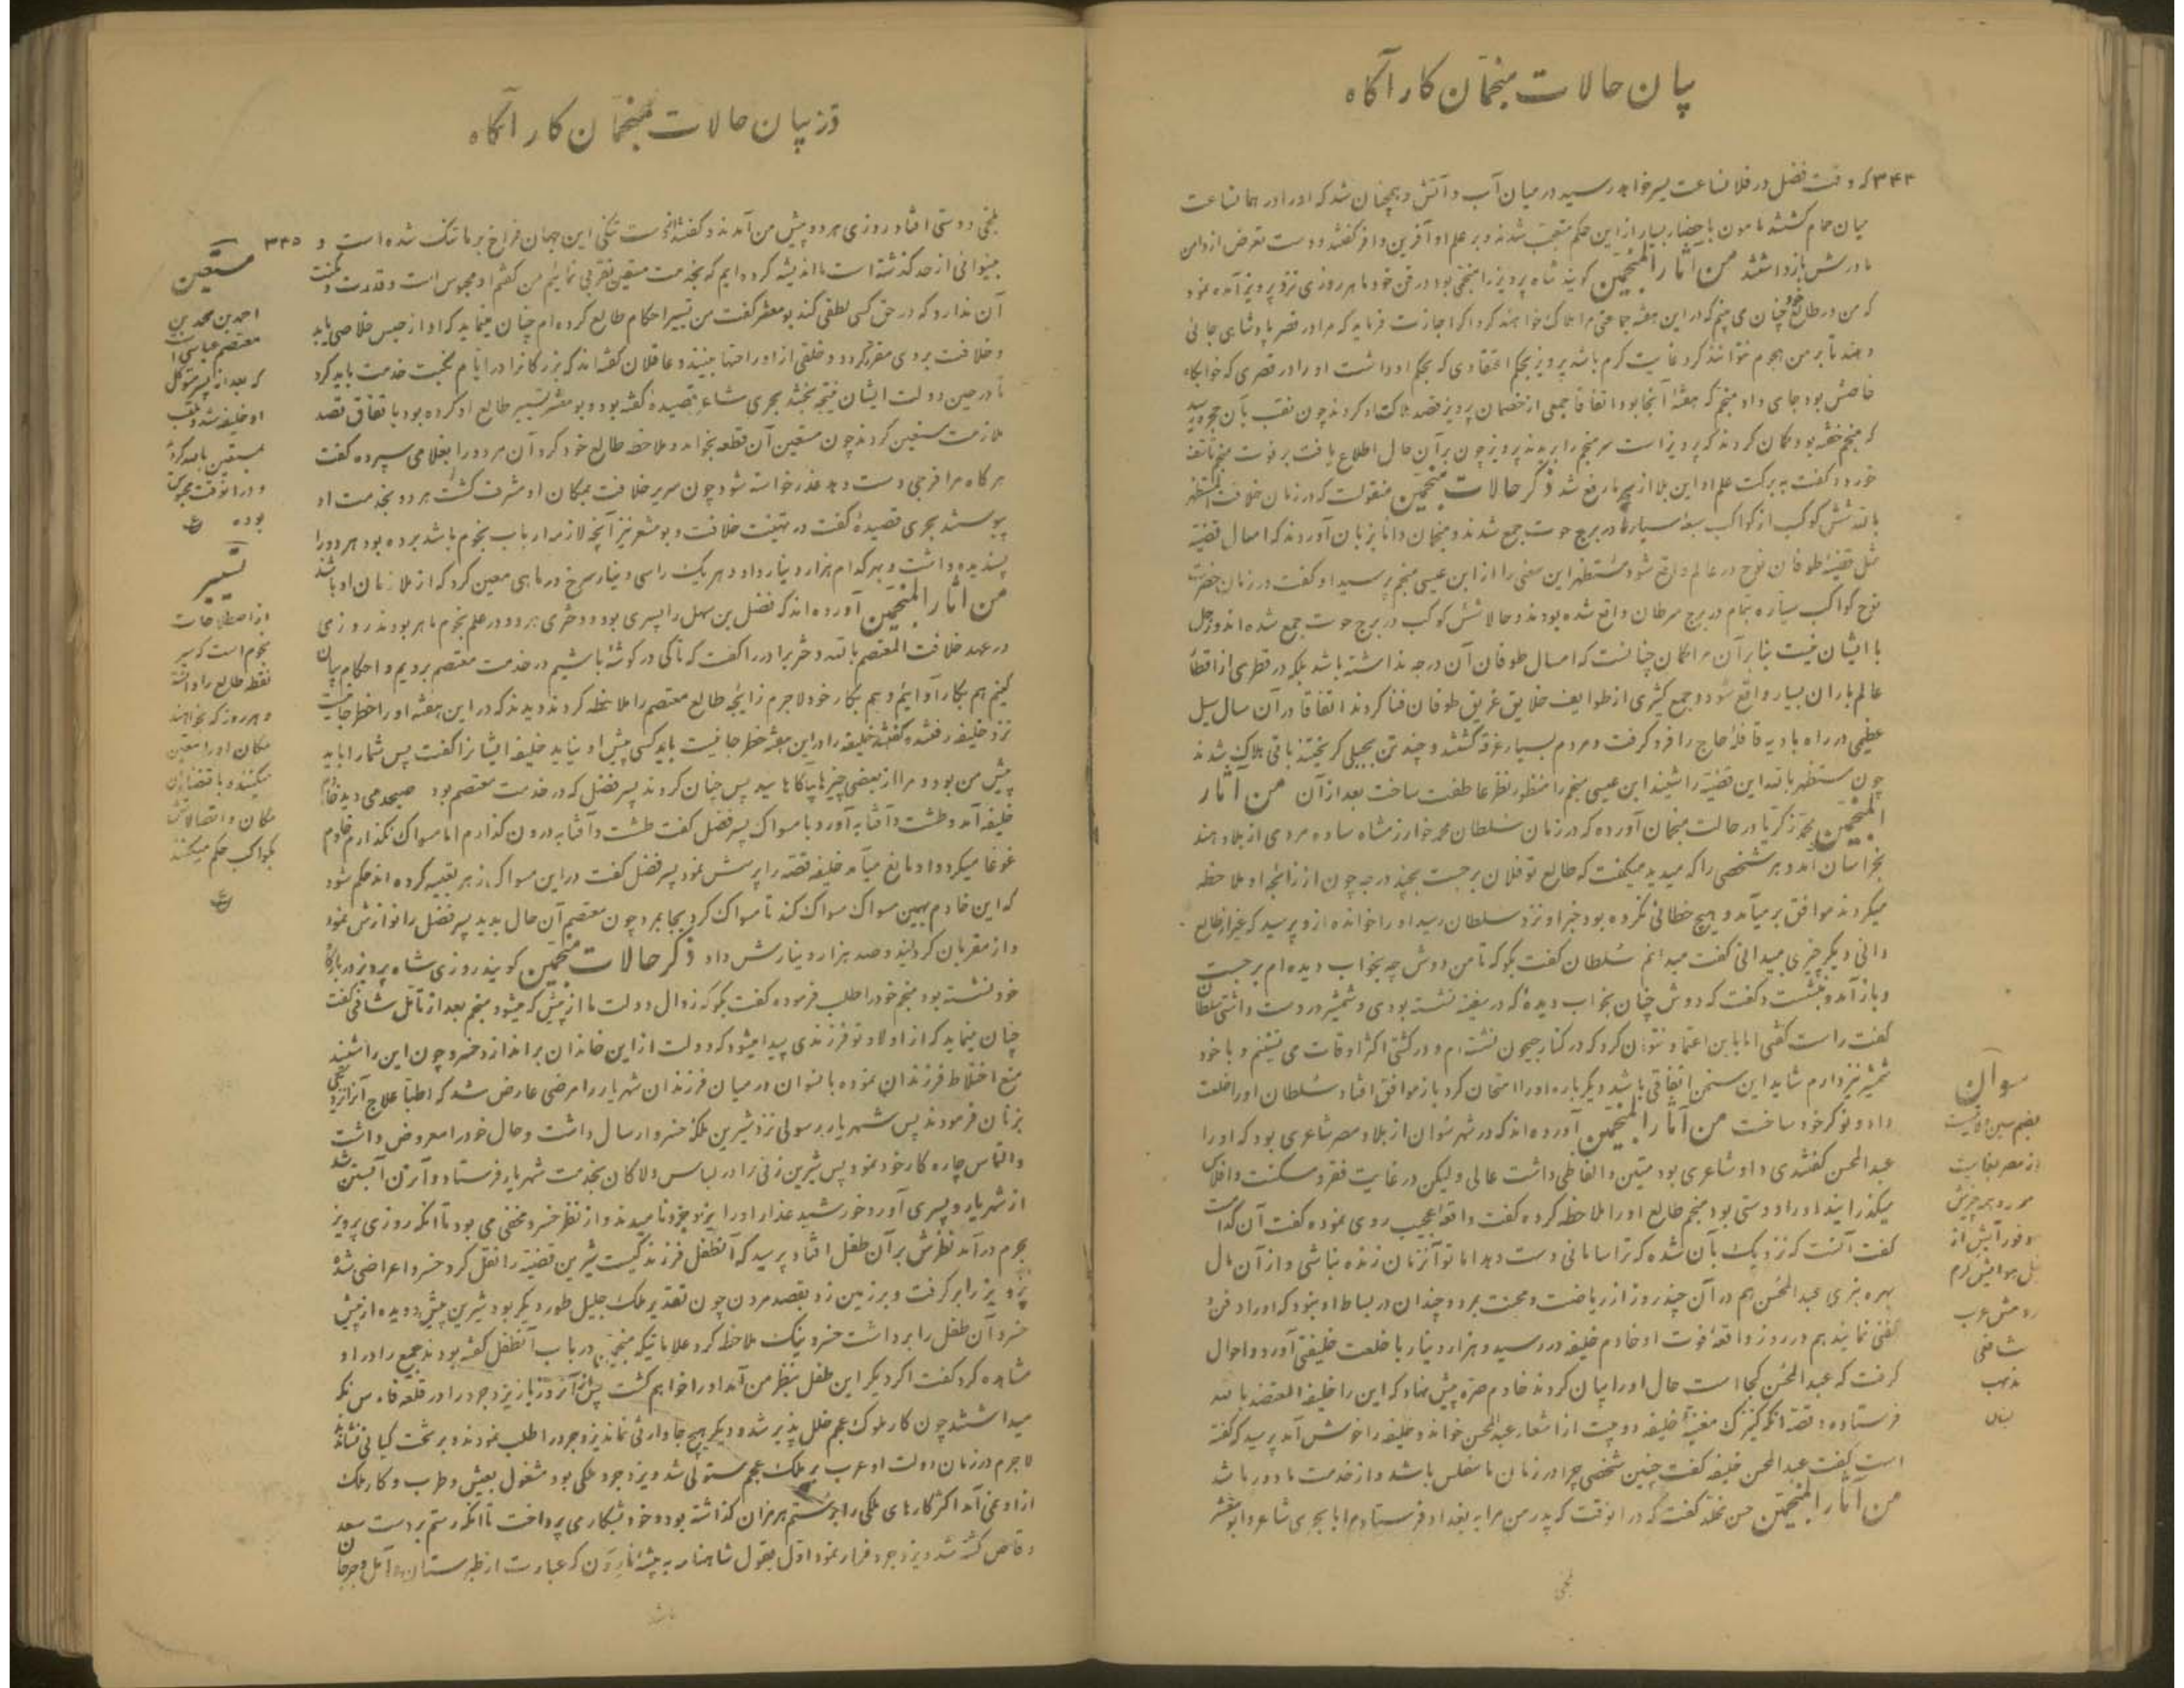 بیان حالات منجمان کار آگاه
۳۴۴ که وقت فضل در فلان ساعت بسر خواهد رسید در میان آب و آتش و همچنان شد که او را در همان ساعت
میان حمام کشتند مامون باحضار بسیار از این حکم متعجب شدند و بر علم او آفرین وافر گفتند و دست تعرض از دامن
مادرش بازداشتند من آثار المنجمین گویند شاه پرویز را منجمی بود در فن خود ماهر روزی نزد پرویز آمده نمود
که من در طالع خود چنان می بینم که در این هفته جماعتی مرا هلاک خواهند کرد اگر اجازت فرماید که مرا در قصر پادشاهی جائی
دهند تا بر من هجوم نتوانند کرد غایت کرم باشد پرویز بحکم اعتقادی که بحکم او داشت او را در قصری که خوابگاه
خاصش بود جای داد منجم که هفتهٔ آنجا بود اتفاقا جمعی از خصمان پرویز قصد هلاکت او کردند چون نقب بآن حجره رسید
که منجم خفته بود گمان کردند که پرویز است سر منجم را بریدند پرویز چون بر آن حال اطلاع یافت بر فوت منجم تاسف
خورد و گفت به برکت علم او این بلا از من دفع شد ذکر حالات منجمین منقولست که در زمان خلافت المستظهر
بالله شش کوکب از کواکب سبعهٔ سیاره در برج حوت جمع شدند و منجمان دانا بزبان آوردند که امسال قضیهٔ
مثل قضیهٔ طوفان نوح در عالم واقع شود مستظهر این معنی را از ابن عیسی منجم پرسید او گفت در زمان حضرت
نوح کواکب سیاره تمام در برج سرطان واقع شده بودند و حالا شش کوکب در برج حوت جمع شده اند و زحل
با ایشان نیست بنا بر آن مرا گمان چنانست که امسال طوفان آن درجه نداشته باشد بلکه در قطری از اقطار
عالم باران بسیار واقع شود و جمع کثیری از طوایف خلایق غریق طوفان فنا گردند اتفاقا در آن سال سیل
عظیمی در راه بادیه قافلهٔ حاج را فرو گرفت و مردم بسیار غرقه گشتند و چند تن بحیلی گریختند باقی هلاک شدند
چون مستظهر بالله این قضیه را شنید ابن عیسی منجم را منظور نظر عاطفت ساخت بعد از آن من آثار
المنجمین محمد زکریا در حالت منجمان آورده که در زمان سلطان محمد خوارزمشاه ساده مردی از بلاد هند
بخراسان آمد و هر شخصی را که میدید میگفت که طالع تو فلان برجست بچند درجه چون از زایچهٔ او ملاحظه
میکردند موافق بر میآمد و هیچ خطائی نکرده بود خبر او نزد سلطان رسید او را خوانده از او پرسید که غیر از طالع
دانی دیگر چیزی میدانی گفت میدانم سلطان گفت بگو که تا من دوش چه بخواب دیده ام برجست
و باز آمد و بنشست و گفت که دوش چنان بخواب دیدهٔ که در سفینه نشسته بودی و شمشیر در دست داشتی سلطان
گفت راست گفتی اما باین اعتماد نتوان کرد که در کنار جیحون نشسته ام و در کشتی اکثر اوقات می نشینم و با خود
شمشیر نیز دارم شاید این سخن اتفاقی باشد دیگر باره او را امتحان کرد باز موافق افتاد سلطان او را خلعت
داد و نوکر خود ساخت من آثار المنجمین آورده اند که در شهر سوان از بلاد مصر شاعری بود که او را
عبد المحسن گفتندی و او شاعری بود متین و الفاظی داشت عالی ولیکن در غایت فقر و مسکنت و افلاس
میگذرانید او را دوستی بود منجم طالع او را ملاحظه کرده گفت واقعهٔ عجیب روی نموده گفت آن کدامست
گفت آنست که نزدیک بآن شده که ترا سامانی دست دهد اما تو آنزمان زنده نباشی و از آن مال
بهره نبری عبد المحسن هم در آن چند روز از ریاضت و محنت بمرد و چندان در بساط او نبود که او را دفن و
کفنی نمایند هم در روز واقعهٔ فوت او خادم خلیفه در رسید و هزار دینار با خلعت خلیفتی آورد و احوال
گرفت که عبد المحسن کجا است حال او را بیان کردند خادم صره پیش نهاد که این را خلیفه المعتضد بالله
فرستاده؛ قصه آنکه کنیزک مغنیهٔ خلیفه دو بیت از اشعار عبد المحسن خواند و خلیفه را خوش آمد پرسید که گفته
است گفت عبد المحسن خلیفه گفت چنین شخصی چرا در زمان ما مفلس باشد و از خدمت ما دور باشد
من آثار المنجمین حسن مخلد گفت که در انوقت که پدر من مرا به بغداد فرستاد مرا با بحری شاعر و ابو معشر
بلخی
سوان
بضم سین
از مصر بغایت
شافعی
مذهب
در بیان حالات منجمان کار آگاه
۳۴۵ بلخی دوستی افتاد روزی هر دو پیش من آمدند و گفتند تنگی این جهان فراخ بر ما تنک شده است و
بینوائی از حد گذشته است ما اندیشه کرده ایم که بخدمت مستعین تقربی نمائیم من گفتم او محبوس است و قدرت و مکنت
آن ندارد که در حق کسی لطفی کند بو معشر گفت من تسییر احکام طالع کرده ام چنان مینماید که او از حبس خلاصی یابد
و خلافت بر وی مقرر گردد و خلقی از او راحتها بینند و عاقلان گفته اند که بزرگانرا در ایام نکبت خدمت باید کرد
تا در حین دولت ایشان نتیجه بخشد بحری شاعر قصیدهٔ گفته بود و بو معشر تسییر طالع او کرده بود با تفاق قصد
ملازمت مستعین کردند چون مستعین آن قطعه بخواند و ملاحظه طالع خود کرد آن هر دو را بغلامی سپرده گفت
هر گاه مرا فرجی دست دهد عذر خواسته شود چون سریر خلافت بمکان او مشرف گشت هر دو بخدمت او
پیوستند بحری قصیدهٔ گفت در تهنیت خلافت و بو معشر نیز آنچه لازمه ارباب نجوم باشد برده بود هر دو را
پسندیده داشت و بهر کدام هزار دینار داد و هر یک را سی دینار سرخ در ماهی معین کرد که از ملازمان او باشند
من آثار المنجمین آورده اند که فضل بن سهل را پسری بود و دختری هر دو در علم نجوم ماهر بودند روزی
در عهد خلافت المعتصم بالله دختر برادر را گفت که تا کی در گوشهٔ باشیم در خدمت معتصم برویم و احکام بیان
کنیم هم بکار او آئیم و هم بکار خود لاجرم زایچه طالع معتصم را ملاحظه کردند دیدند که در این هفته او را خطر جانیست
نزد خلیفه رفتند و گفتند خلیفه را در این هفته خطر جانیست باید کسی پیش او نیاید خلیفه ایشانرا گفت پس شما را باید
پیش من بود و مرا از بعضی چیزها آگاهانید پس چنان کردند پسر فضل که در خدمت معتصم بود صبحدمی دید خادم
خلیفه آمد و طشت و آفتابه آورد با مسواک پسر فضل گفت طشت و آفتابه درون گذارم اما مسواک نگذارم خادم
غوغا میکرد و او مانع میآمد خلیفه قصه را پرسش نمود پسر فضل گفت در این مسواک زهر تعبیه کرده اند حکم شود
که این خادم بهمین مسواک مسواک کند تا مسواک کرد بجا بمرد چون معتصم آن حال بدید پسر فضل را نوازش نمود
و از مقربان گردانید و صد هزار دینارش داد ذکر حالات منجمین گویند روزی شاه پرویز در بارگاه
خود نشسته بود منجم خود را طلب فرموده گفت بگو که زوال دولت ما از پیش که میشود منجم بعد از تأمل شافی گفت
چنان مینماید که از اولاد تو فرزندی پیدا میشود که دولت از این خاندان بر اندازد خسرو چون این را شنید
منع اختلاط فرزندان نموده با نسوان در میان فرزندان شهریار را مرضی عارض شد که اطبا علاج آنرا نزدیکی
بزنان فرمودند پس شهریار رسولی نزد شیرین ملکهٔ خسرو ارسال داشت و حال خود را معروض داشت
و التماس چاره کار خود نمود پس شیرین زنی را در لباس دلاکان بخدمت شهریار فرستاد و آن زن آبستن شد
از شهریار و پسری آورد خورشید عذار او را یزدجرد نامیدند و از نظر خسرو مخفی می بود تا آنکه روزی پرویز
بحرم درآمد نظرش بر آن طفل افتاد پرسید که آنطفل فرزند کیست شیرین قضیه را نقل کرد خسرو اعراضی شده
پرویز را بر گرفت و بر زمین زد بقصد مردن چون تقدیر ملک جلیل طور دیگر بود شیرین پیش دویده از پیش
خسرو آن طفل را برداشت خسرو نیک ملاحظه کرد علاماتیکه منجمین در باب آنطفل گفته بودند جمیع را در او
مشاهده کرد گفت اگر دیگر این طفل بنظر من آمد او را خواهم کشت پس از آنروز باز یزدجرد را در قلعه فارس نگه
میداشتند چون کار ملوک عجم خلل پذیر شد و دیگر هیچ جا وارثی نماند یزدجرد را طلب نمودند و بر تخت کیانی نشاندند
لاجرم در زمان دولت او عرب بر ملک عجم مستولی شد و یزدجرد ملکی بود مشغول بعیش و طرب و کار ملک
از او نمی آمد اکثر کارهای ملکی را برستم هرمزان گذاشته بود و خود بشکار می پرداخت تا آنکه رستم بر دست سعد
وقاص کشته شد و یزدجرد فرار نمود اول بقول شاهنامه به بیشهٔ نارون که عبارت از طبرستان و آمل و جرجان
باشد
مستعین
احمد بن محمد بن
معتصم عباسی
که بعد از پسر متوکل
او خلیفه شد و لقب
مستعین بالله کرد
و در انوقت محبوس
بوده
تسییر
از اصطلاحات
نجوم است که سیر
نقطه طالع را دانسته
و هر روز که بخواهند
مکان او را معین
میکنند و باقتضای آن
مکان و اتصالاتش
بکواکب حکم میکنند